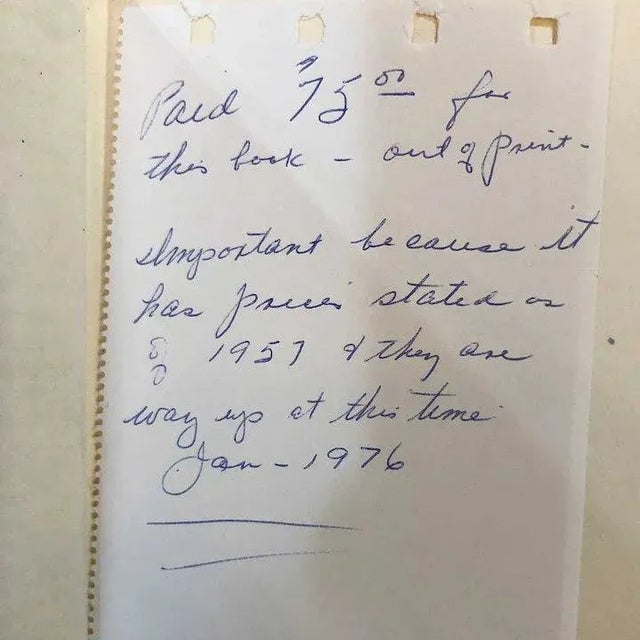 Paid $75.00 for
this book - out of print -
Important because it
has prices stated as
1957 & they are
way up at this time
Jan - 1976